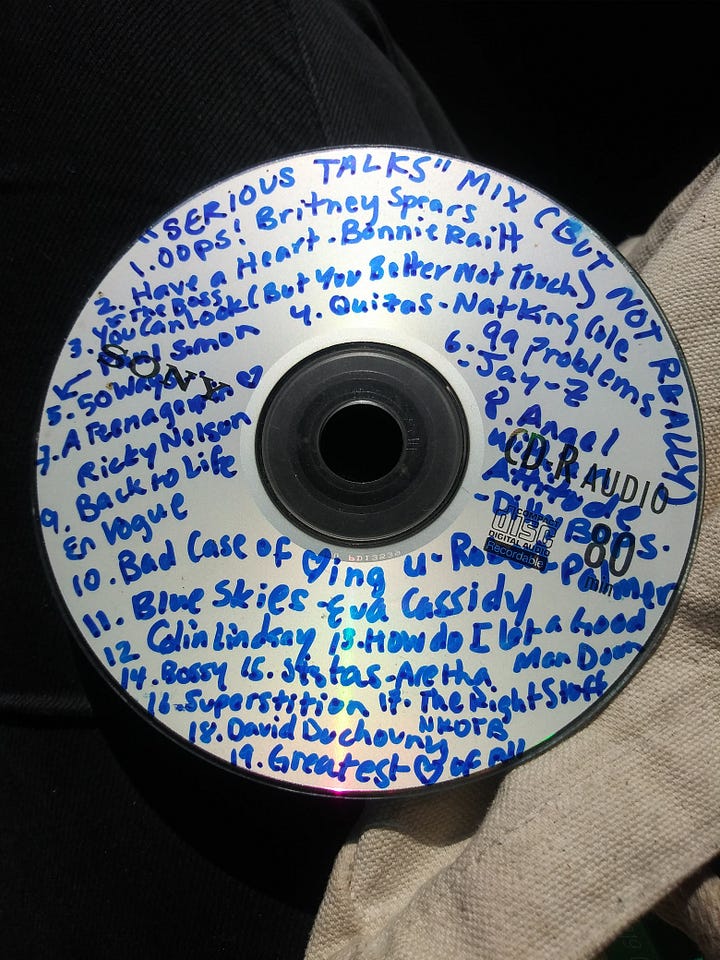 "SERIOUS TALKS" MIX (BUT NOT REALLY)
1. OOPS! Britney Spears
2. Have a Heart - Bonnie Raitt
3. You Can Look (But You Better Not Touch)
The Boss
4. Quizas - Nat King Cole
5. 50 Ways
Simon
6. 99 Problems
- Jay-Z
7. A Teenager in ♡
Ricky Nelson
8. Angel
Attitude
- Bros.
9. Back to Life
En Vogue
10. Bad Case of ♡ing U - Palmer
11. Blue Skies - Eva Cassidy
12 Colin Lindsay 13. How do I let a Good
Man Down
14. Bossy 15. Sistas - Aretha
16. Superstition 17. The Right Stuff
NKOTB
18. David Duchovny
19. Greatest ♡ of All
SONY
CD-R AUDIO
80
min
COMPACT
disc
DIGITAL AUDIO
Recordable